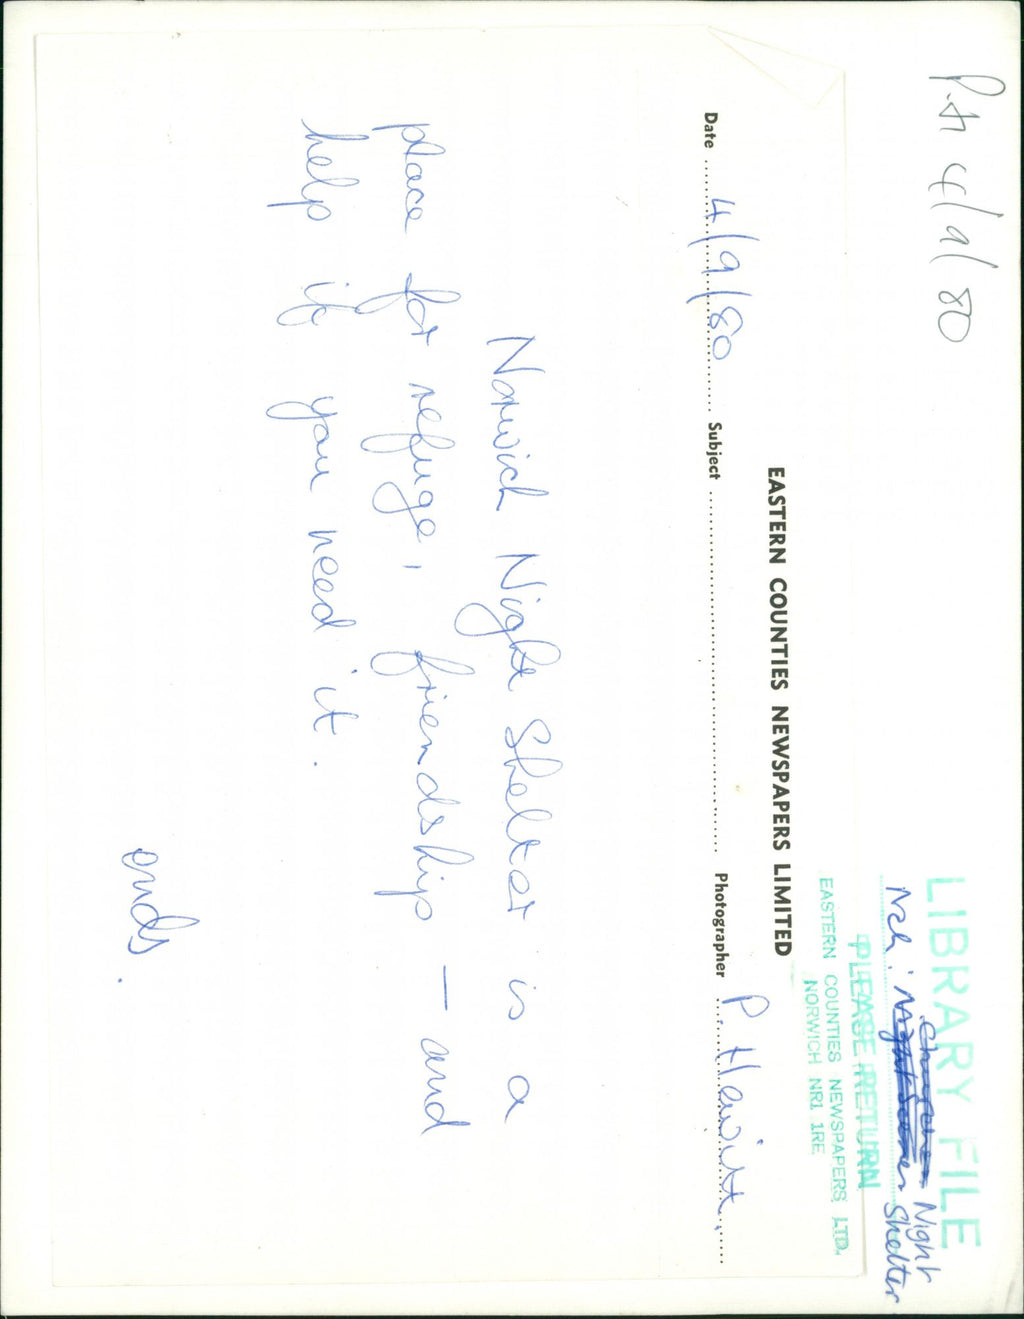 P.H 4/9/80
LIBRARY FILE
Nch: Churches Night
Night Scenes Shelter
PLEASE RETURN
EASTERN COUNTIES NEWSPAPERS LTD.
NORWICH NR1 1RE
EASTERN COUNTIES NEWSPAPERS LIMITED
Date 4/9/80 Subject Photographer P Hewitt.
Norwich Night Shelter is a
place for refuge, friendships — and
help if you need it.
ends.